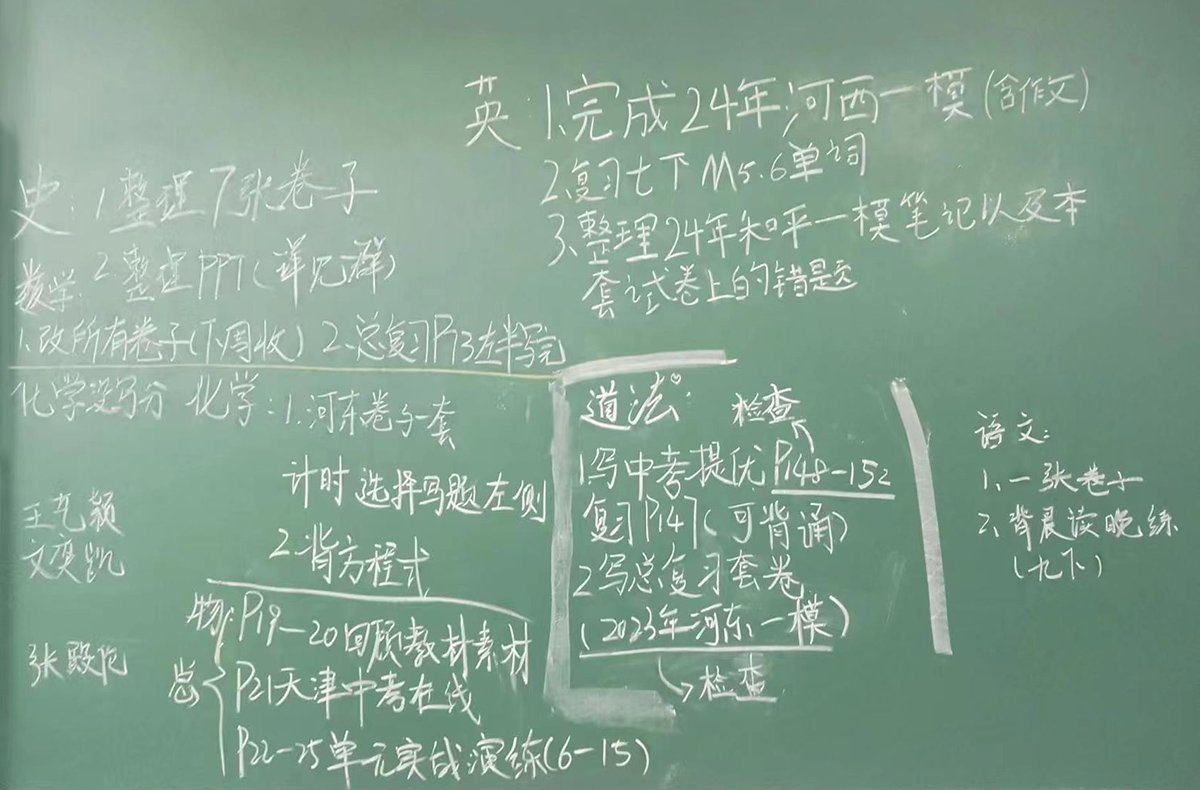 英:1.完成24年河西一模(含作文)
2.复习七下M5.6单词
3.整理24年和平一模笔记以及本
套试卷上的错题
史:1.整理7张卷子
2.整理PPT(详见群)
数学:
1.改所有卷子(下周收) 2.总复习P73左半写完
化学没写分 化学:1.河东卷子一套
计时 选择写题左侧
2.背方程式
王艺颖
文奕凯
张殿
物:P19-20回顾教材素材
总 P21天津中考在线
P22-25单元实战演练(6-15)
道法:
检查
1.写中考提优P148-152
复习P147(可背诵)
2.写总复习套卷
(2023年河东一模)
→检查
语文:
1.一张卷子
2.背晨读晚练
(九下)